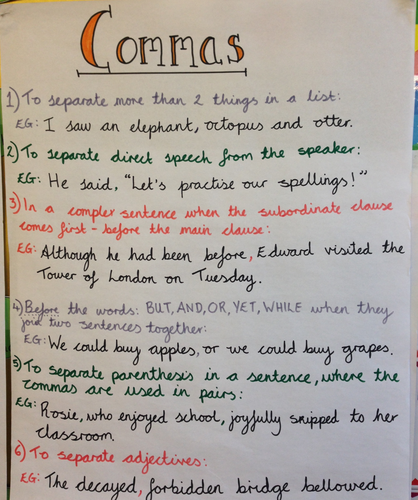 Commas
1) To separate more than 2 things in a list:
EG: I saw an elephant, octopus and otter.
2) To separate direct speech from the speaker:
EG: He said, "Let's practise our spellings!"
3) In a complex sentence when the subordinate clause
comes first - before the main clause:
EG: Although he had been before, Edward visited the
Tower of London on Tuesday.
4) Before the words: BUT, AND, OR, YET, WHILE when they
join two sentences together:
EG: We could buy apples, or we could buy grapes.
5) To separate parenthesis in a sentence, where the
commas are used in pairs:
EG: Rosie, who enjoyed school, joyfully skipped to her
classroom.
6) To separate adjectives:
EG: The decayed, forbidden bridge bellowed.